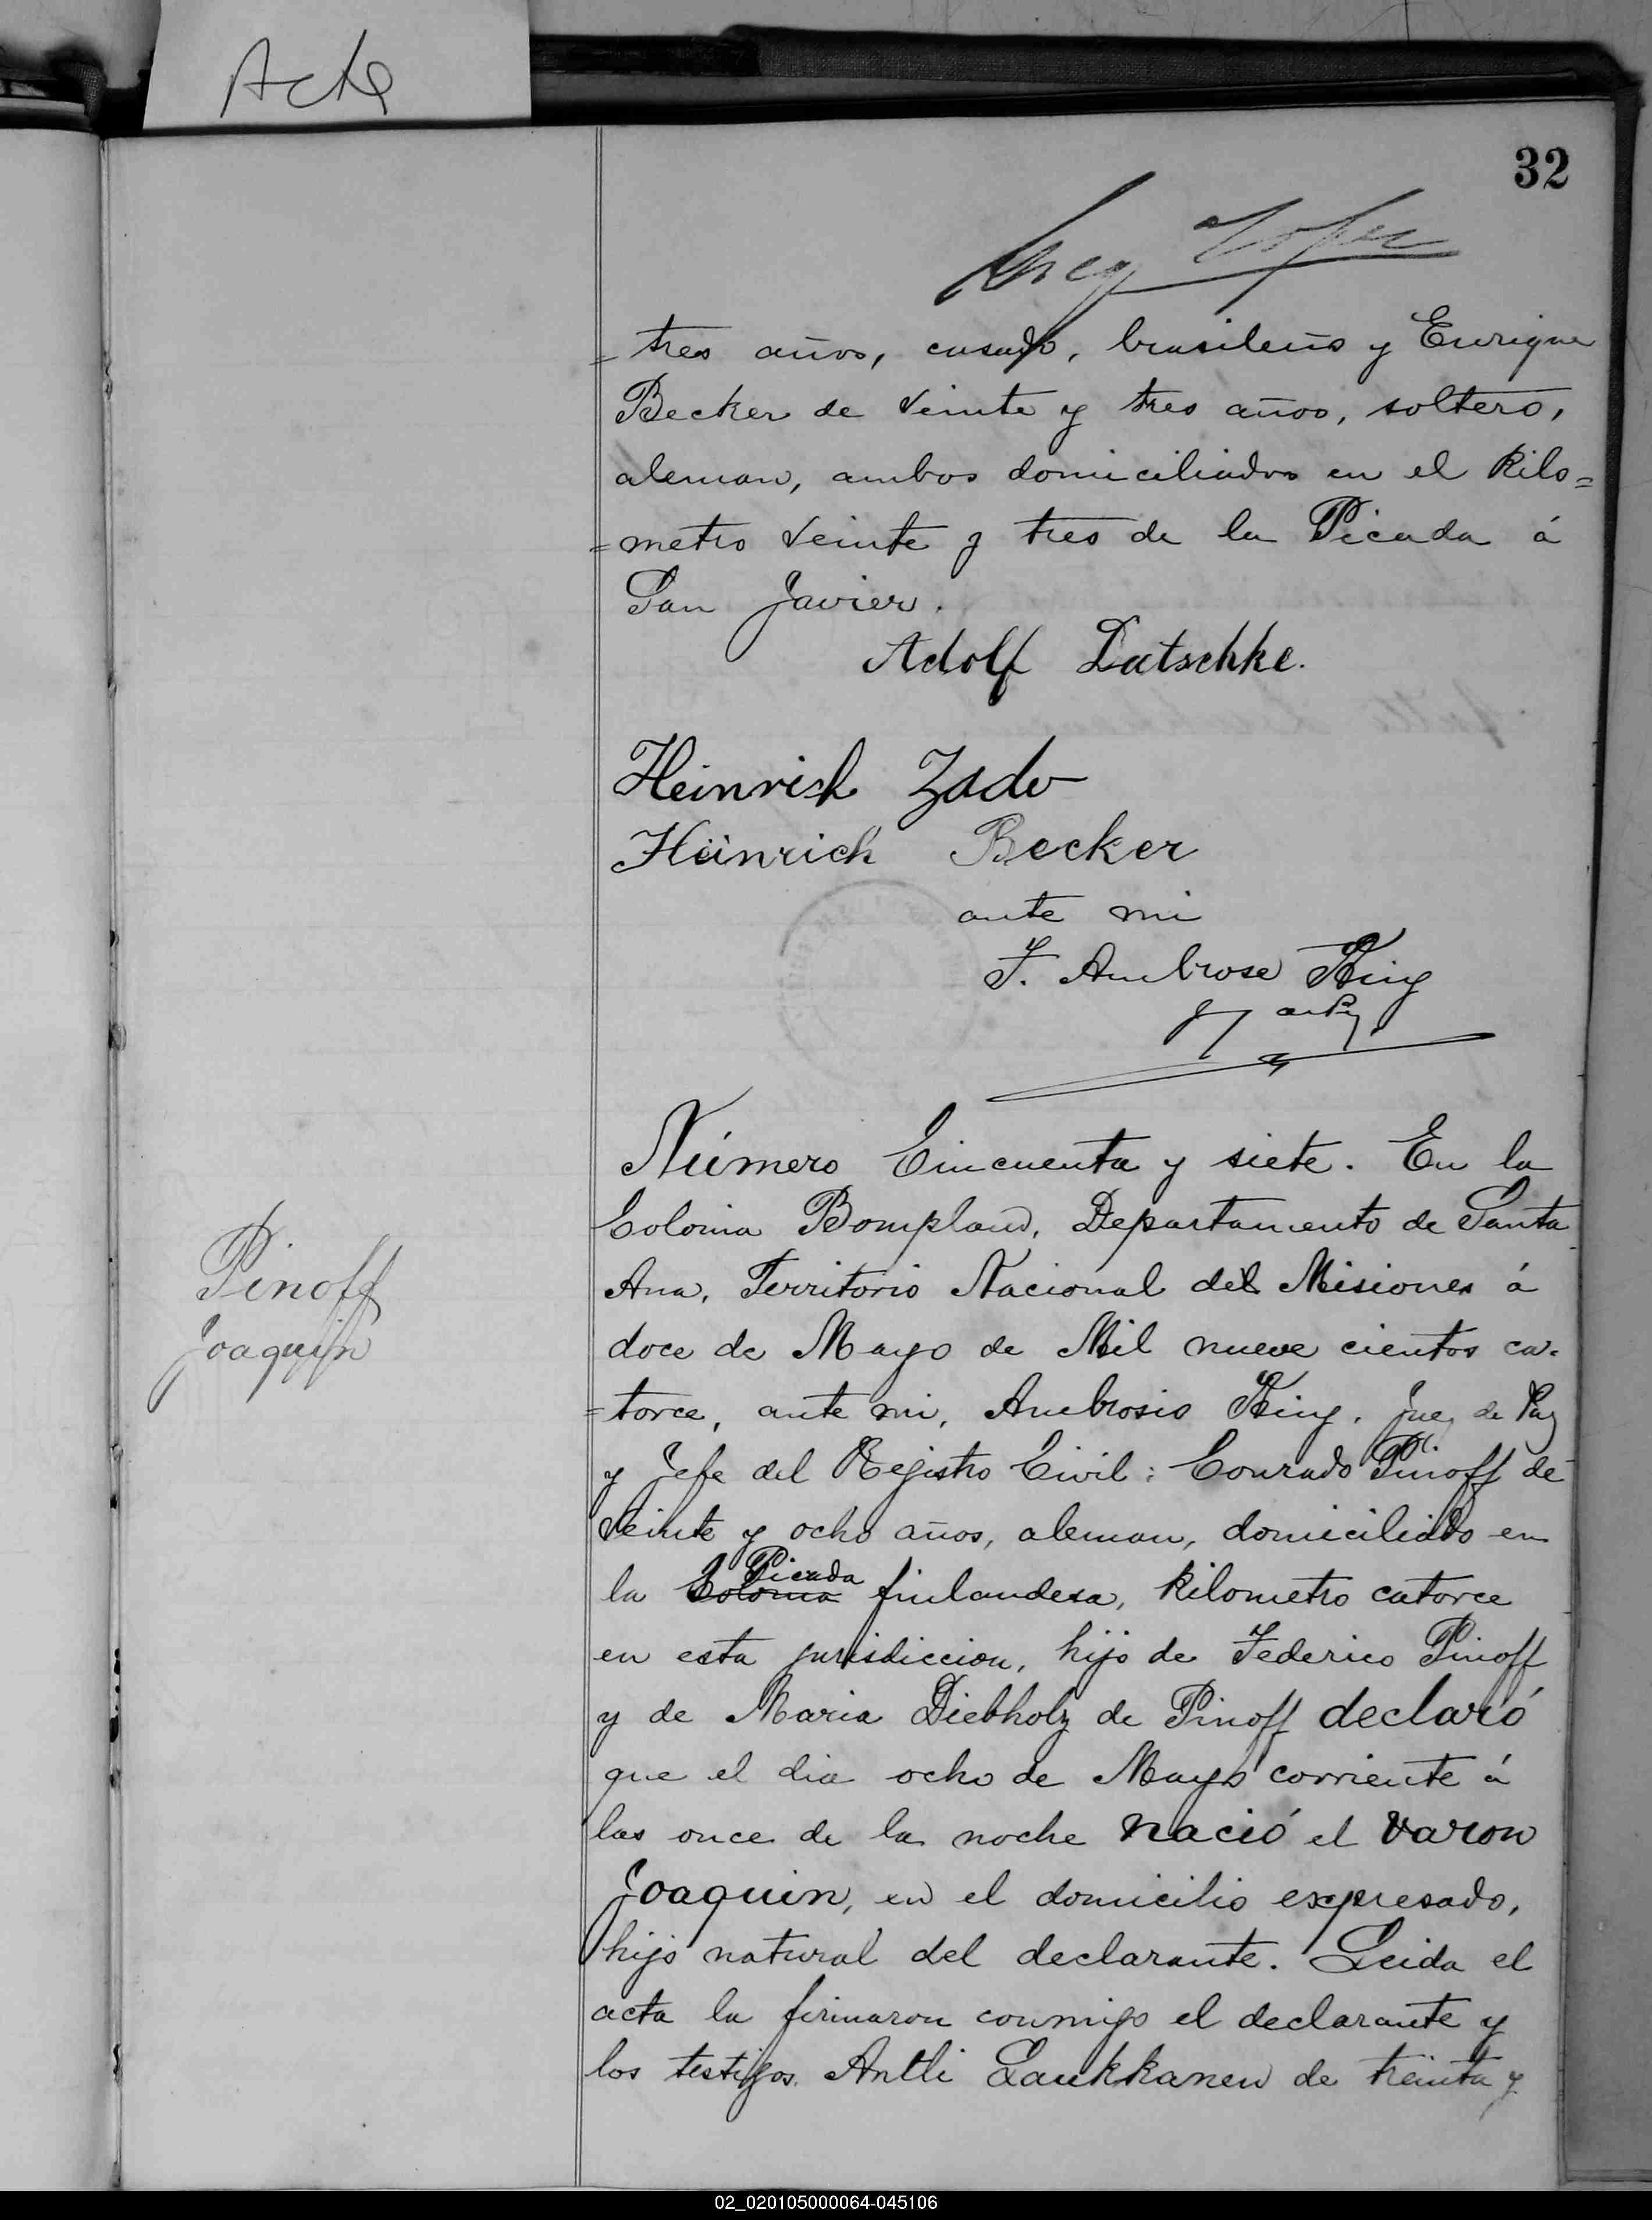 Acta
32
=tres años, casado, brasileño y Enrique
Becker de veinte y tres años, soltero,
aleman, ambos domiciliados en el Kilo=
=metro veinte y tres de la Picada á
San Javier.
Adolf Latschke.
Heinrich
Heinrich Becker
ante mi
F. Ambrose King
Número Cincuenta y siete. En la
Colonia Bompland, Departamento de Santa
Ana, Territorio Nacional de Misiones á
doce de Mayo de Mil nueve cientos ca=
=torce, ante mi, Ambrosio King, Juez de Paz
y Jefe del Registro Civil: Conrado Pinoff de
veinte y ocho años, aleman, domiciliado en
Picada
la Colonia finlandesa, Kilometro catorce
en esta jurisdiccion, hijo de Federico Pinoff
y de Maria Diebholz de Pinoff declaró
que el dia ocho de Mayo corriente á
las once de la noche nació el varon
Joaquin, en el domicilio expresado,
hijo natural del declarante. Leida el
acta la firmaron conmigo el declarante y
los testigos Antti Laukkanen de treinta y
Pinoff
Joaquin
02_020105000064-045106